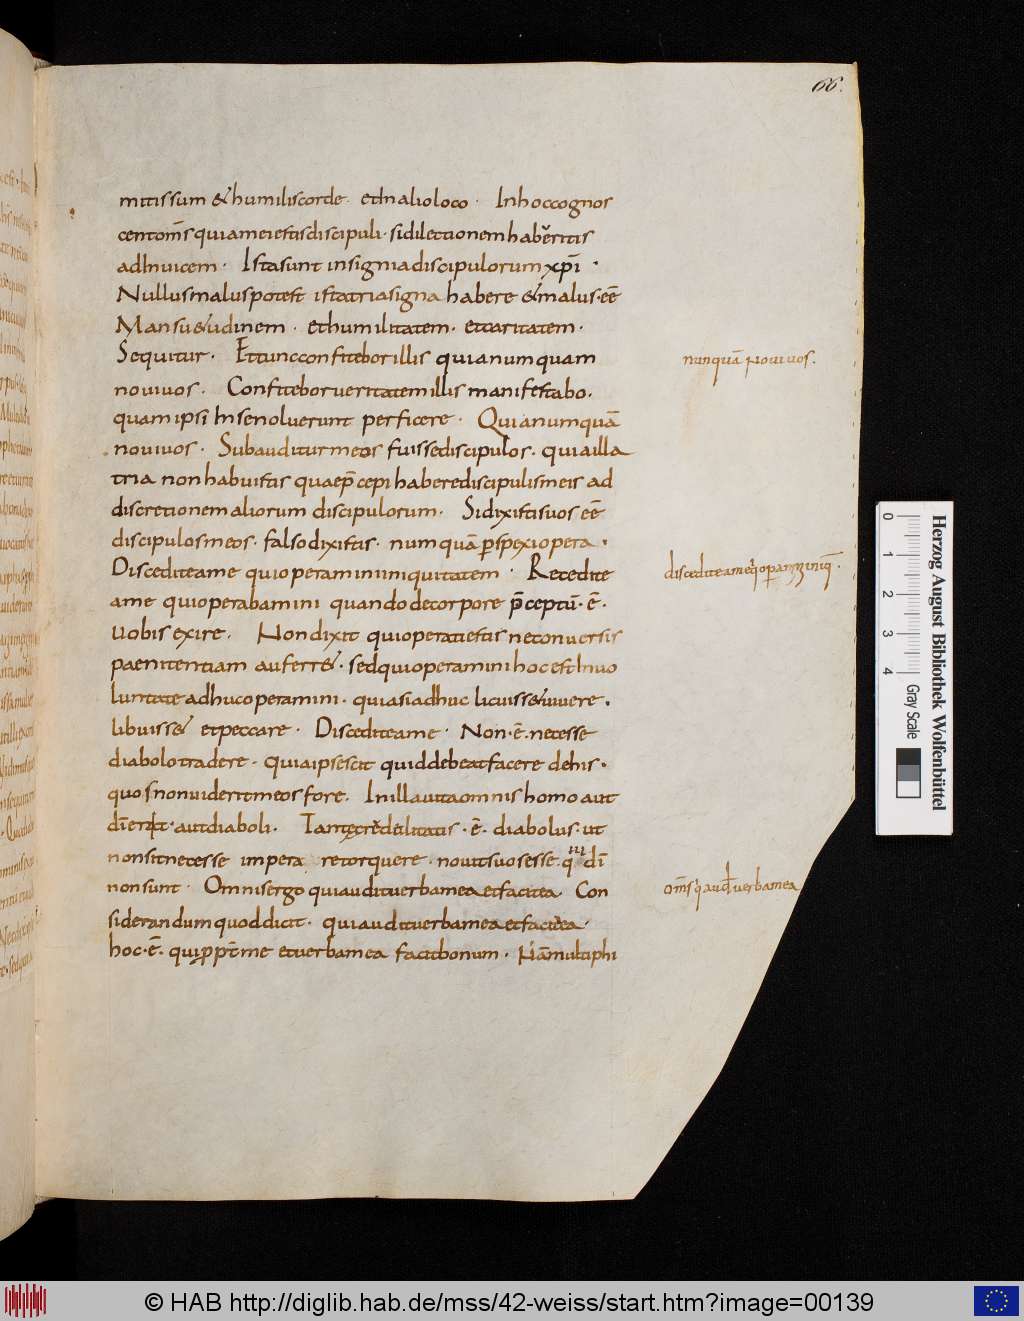 66.
mitissum & humilis corde · et In alio loco · In hoc cognos
cent om̄s quia mei estis discipuli · si dilectionem habueritis
ad Inuicem · Ista sunt insignia discipulorum xp̄i ·
Nullus malus potest ista tria signa habere & malus · eē
Mansu&udinem · et humilitatem · et caritatem ·
Sequitur · Et tunc confitebor illis quia numquam
noui uos · Confitebor ueritatem illis manifestabo ·
quam ipsi In se noluerunt perficere · Quia numquā
noui uos · Subauditur meos fuisse discipulos · quia illa
tria non habuistis quae p̄cepi habere discipulis meis ad
discretionem aliorum discipulorum · Si dixistis uos eē
discipulos meos · falso dixistis · numquā pspexi opera ·
Discedite a me qui operamini iniquitatem · Recedite
a me qui operabamini quando de corpore p̄ceptū · ē ·
uobis exire · Non dixit qui operati estis ne conuersis
paenitentiam auferr& · sed qui operamini hoc est In uo
luntate adhuc operamini · quia si adhuc licuiss& uiuere ·
libuiss& et peccare · Discedite a me · Non · ē · necesse
diabolo tradere · quia ipse scit quid debeat facere de his ·
quos non uiderit meos fore · In illa uita omnis homo aut
dī erit · aut diaboli ·
diabolus · ut
non sit necesse impera retorquere · nouit suos esse · qui dī
non sunt · Omnis ergo qui audit uerba mea et facit ea Con
siderandum quod dicit · qui audit uerba mea et facit ea ·
hoc · ē · qui ppt̄ me et uerba mea facit bonum · Nā multi phi
nunquā noui uos ·
discedite a me q̇ opamini iniq̄ ·
om̄s q̇ aud uerba mea
Herzog August Bibliothek Wolfenbüttel
0 1 2 3 4
Gray Scale
© HAB http://diglib.hab.de/mss/42-weiss/start.htm?image=00139